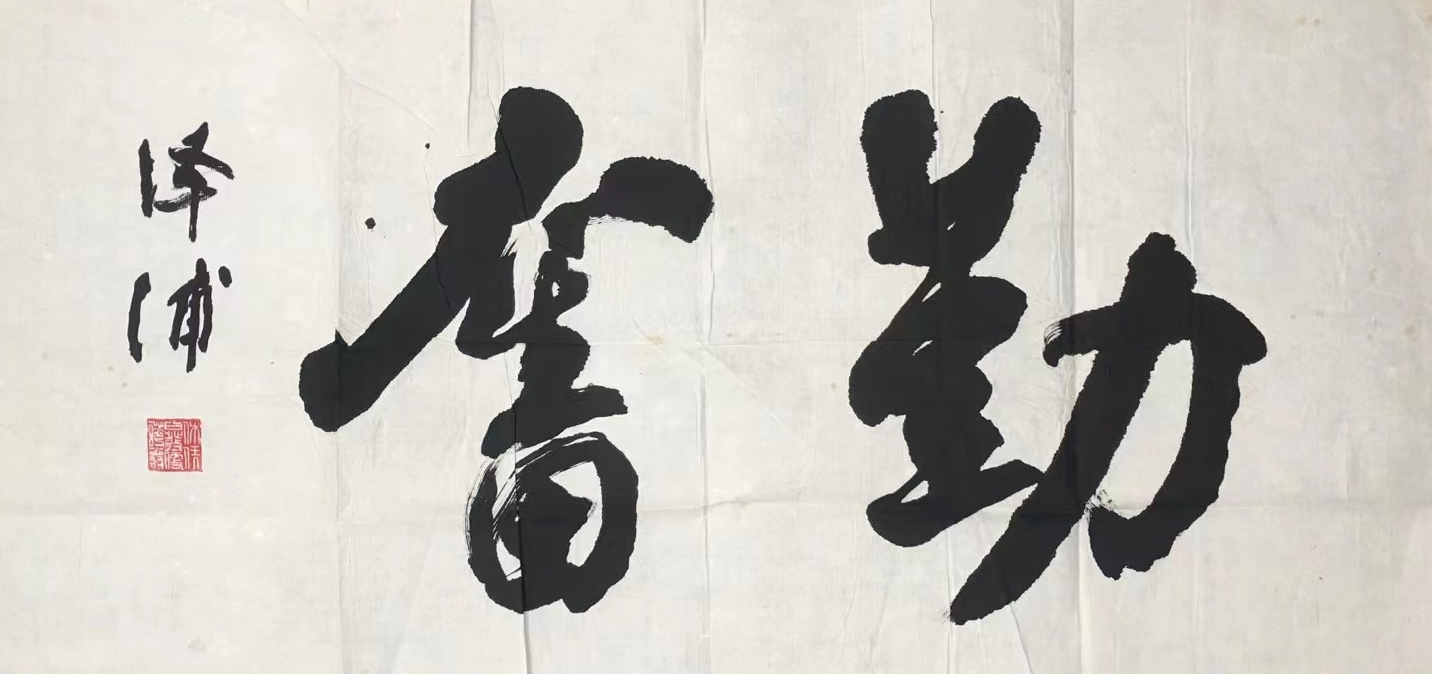 勤奮
泽浦